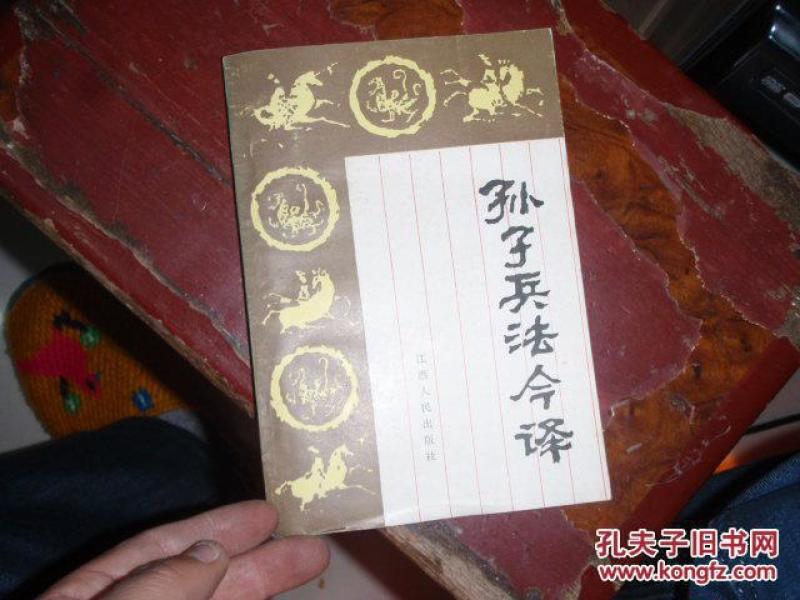 孙子兵法今译
江西人民出版社
孔夫子旧书网
www.kongfz.com